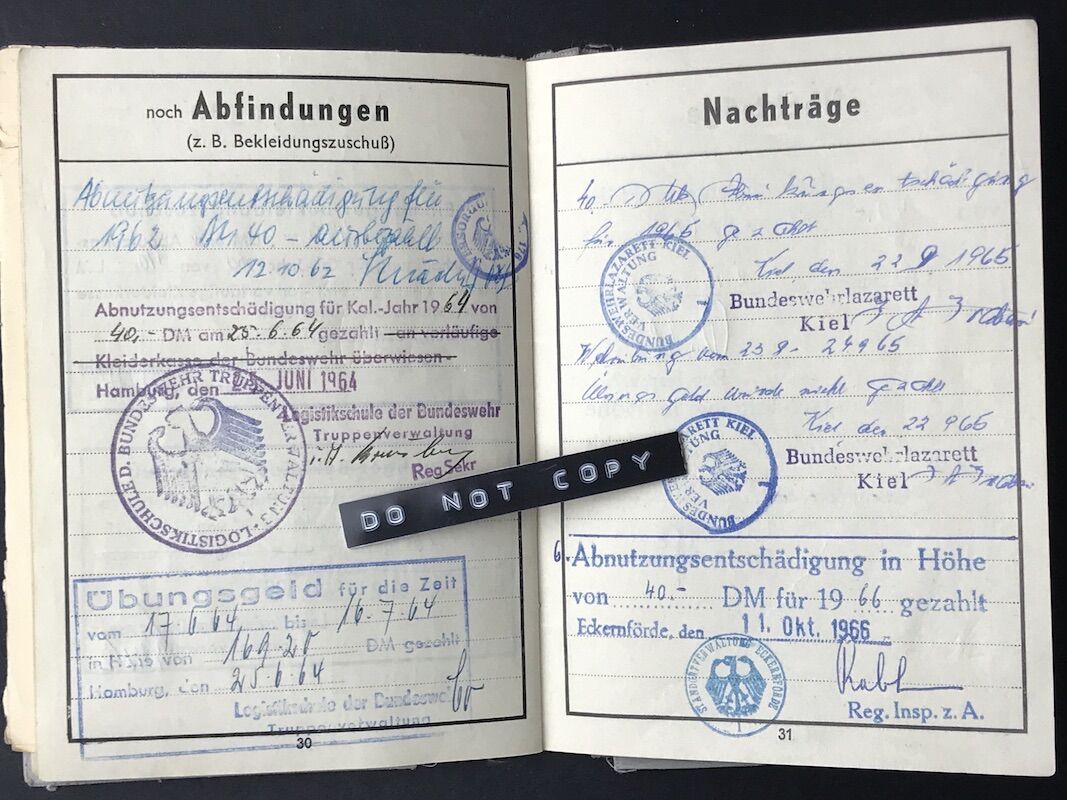 noch Abfindungen
(z. B. Bekleidungszuschuß)
Abnutzungsentschädigung für
1962 DM 40.- ausbezahlt
12.10.62
Abnutzungsentschädigung für Kal.-Jahr 1964 von
40,- DM am 25.6.64 gezahlt an vorläufige
Kleiderkasse der Bundeswehr überwiesen.
Hamburg, den JUNI 1964
Logistikschule der Bundeswehr
Truppenverwaltung
i.A.
RegSekr
LOGISTIKSCHULE D. BUNDESWEHR TRUPPENVERWALTUNG
DO NOT COPY
Übungsgeld für die Zeit
vom 17.6.64 bis 16.7.64
in Höhe von 169.20 DM gezahlt
Hamburg, den 25.6.64
Logistikschule der Bundeswehr
Truppenverwaltung
30
Nachträge
40. DM Abnutzungsentschädigung
für 1965 gezahlt
Kiel den 22 9 1965
BUNDESWEHRLAZARETT KIEL
VERWALTUNG
Bundeswehrlazarett
Kiel
23 9 - 24 9 65
geld wurde nicht gezahlt
Kiel den 22 9 65
BUNDESWEHRLAZARETT KIEL
VERWALTUNG
Bundeswehrlazarett
Kiel
6. Abnutzungsentschädigung in Höhe
von 40.- DM für 1966 gezahlt
Eckernförde, den 11. Okt. 1966
STANDORTVERWALTUNG ECKERNFÖRDE
Reg. Insp. z. A.
31